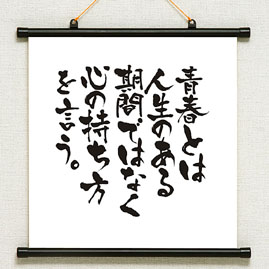 青春とは
人生のある
期間ではなく
心の持ち方
を言う。